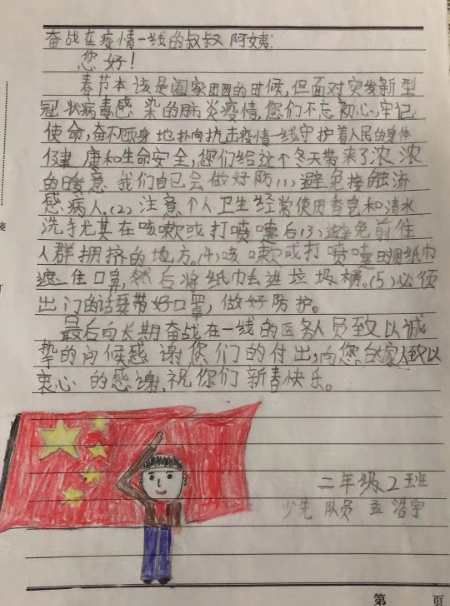 奋战在疫情一线的叔叔阿姨:
您好!
春节本该是阖家团圆的时候,但面对突发新型
冠状病毒感染的肺炎疫情,您们不忘初心,牢记
使命,奋不顾身地扑向抗击疫情一线守护着人民的身体
健康和生命安全,您们给这个冬天带来了浓浓
的暖意。我们自己会做好防(1)避免接触流
感病人.(2)注意个人卫生经常使用香皂和清水
洗手尤其在咳嗽或打喷嚏后(3)避免前往
人群拥挤的地方。(4)咳嗽或打喷嚏时用纸巾
遮住口鼻,然后将纸巾丢进垃圾桶。(5)必须
出门的话要带好口罩,做好防护。
最后向长期奋战在一线的医务人员致以诚
挚的问候感谢您们的付出,向您的家人致以
衷心的感谢,祝你们新春快乐。
二年级2班
少先队员 孟浩宇
第 页